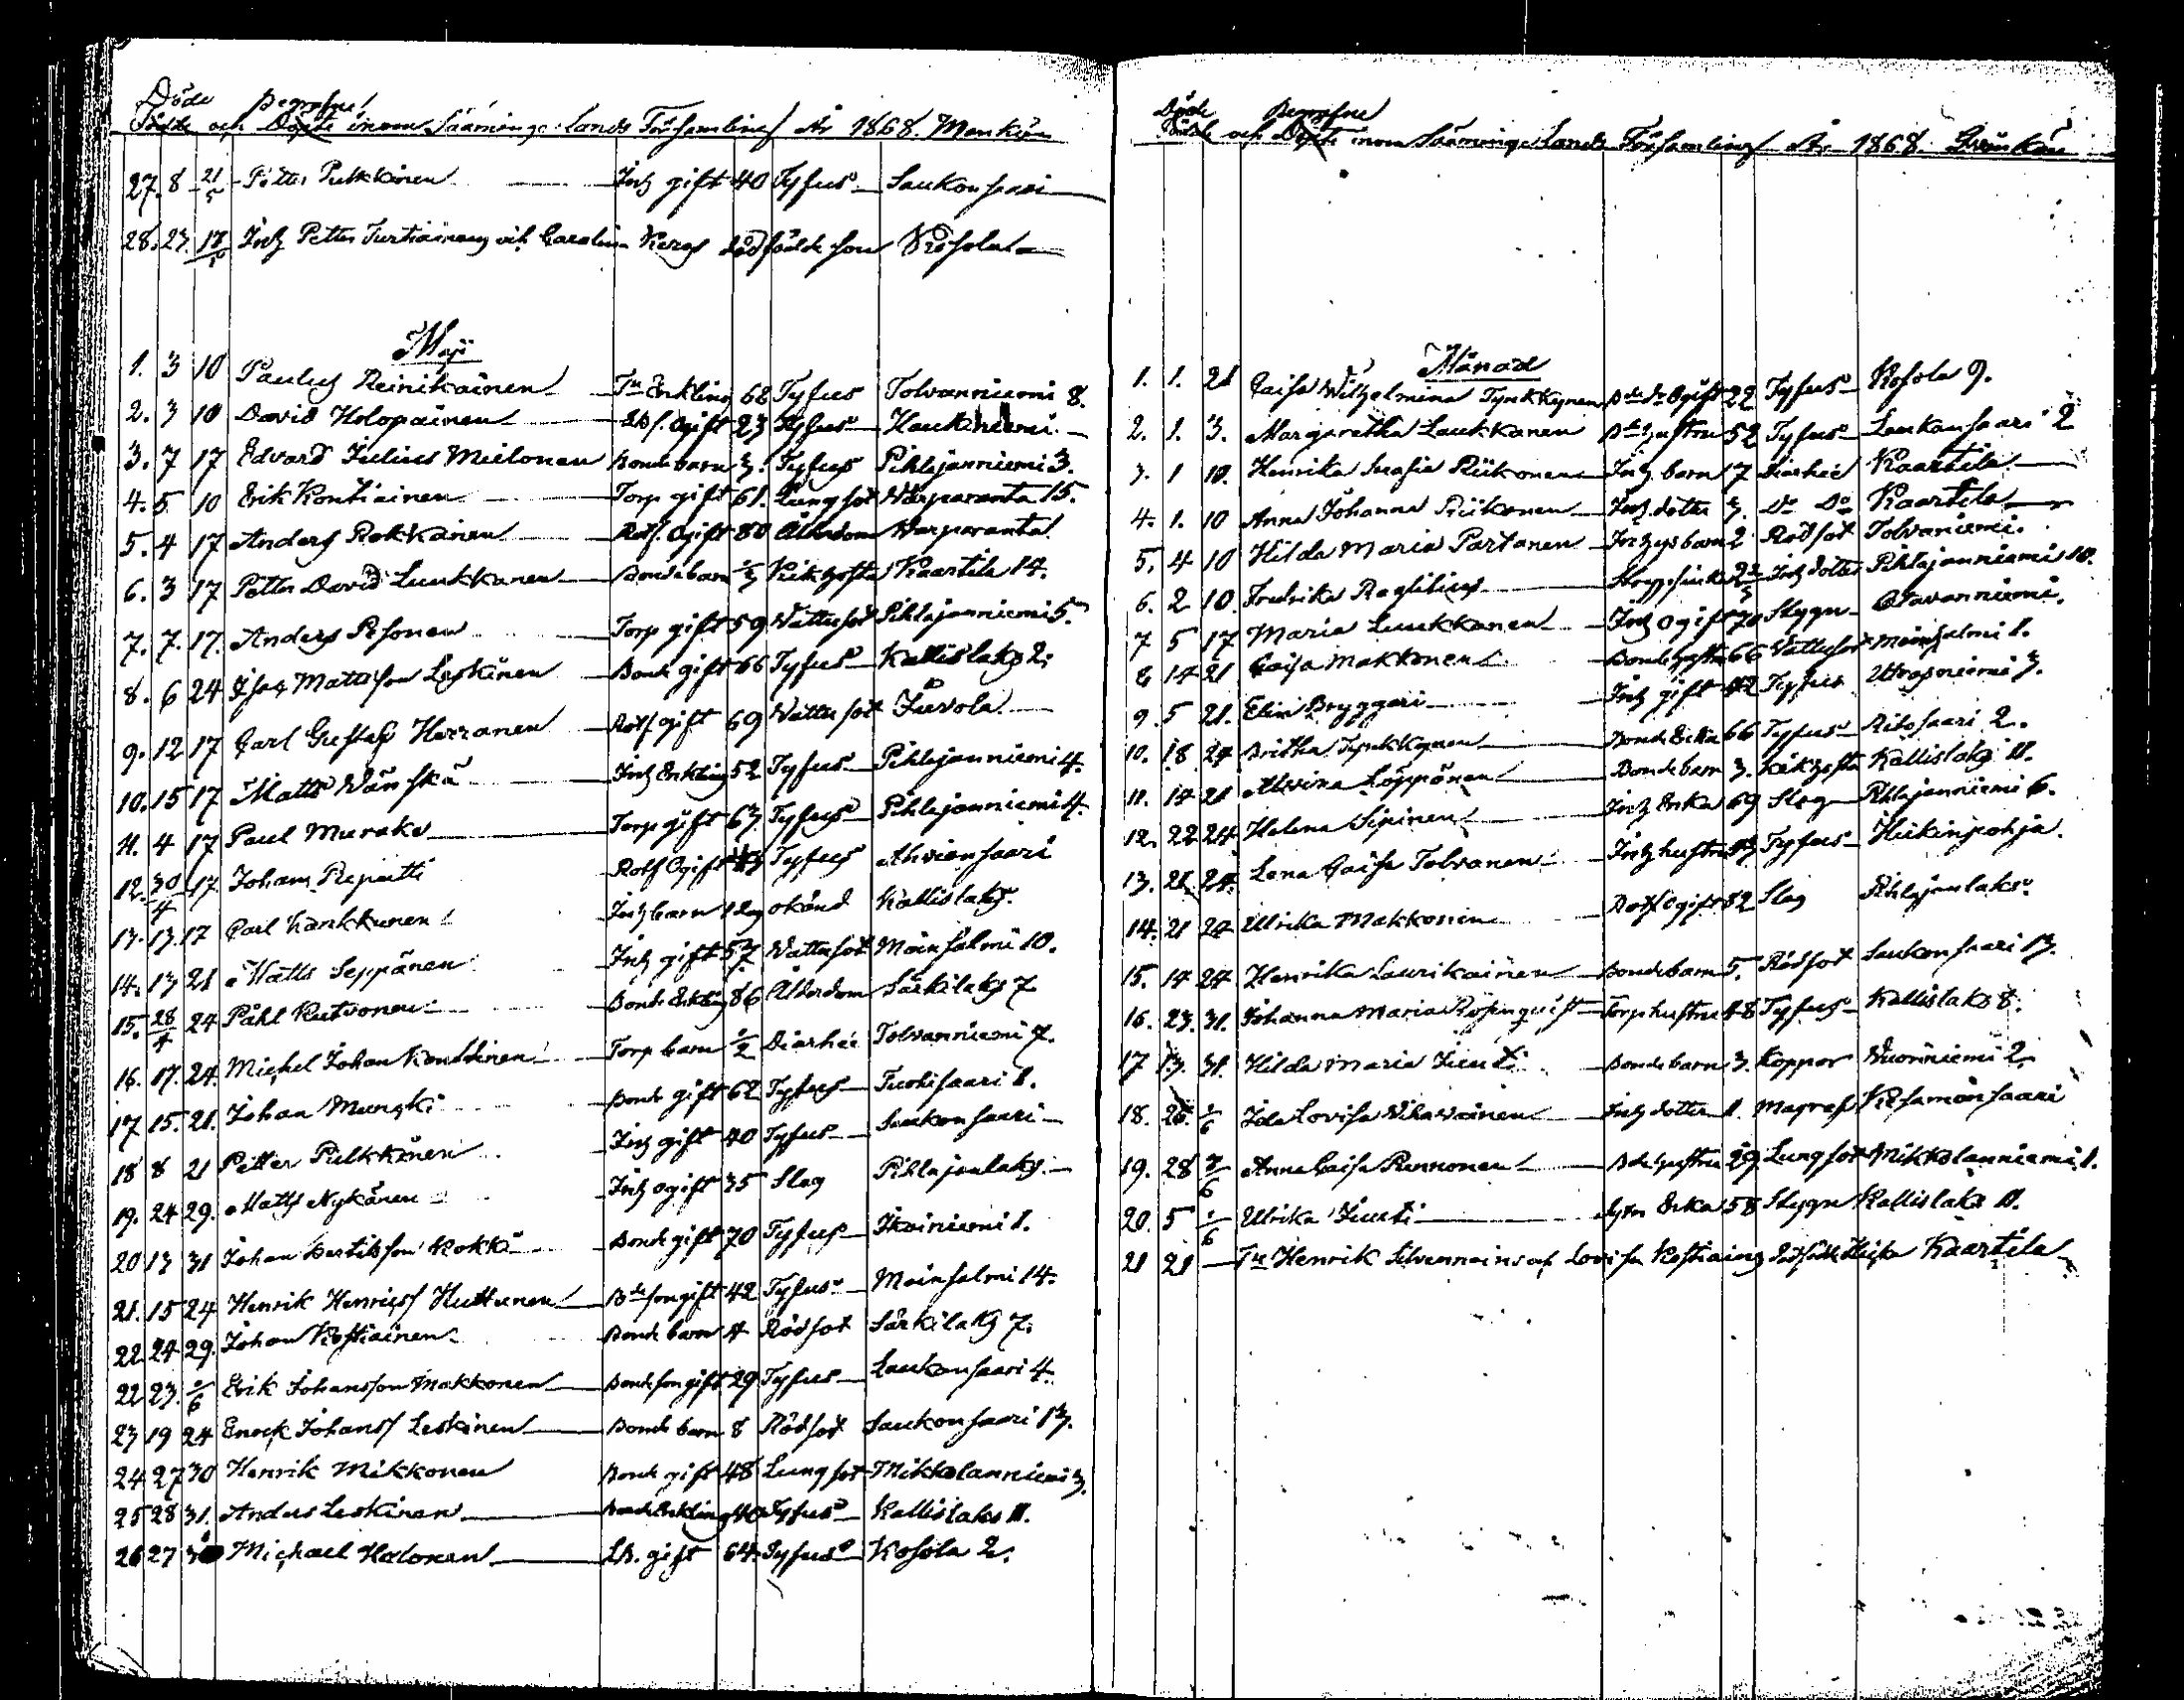 Döde Begrafne
Födde och Döpte inom Sääminge Lands Församling År 1868. Mankön
27. 8 21/5 Petter Pulkkinen Inh gift 40 Tyfus Saukonsaari
28. 23. 17/5 Inh Petter Turtiainens och Carolina dödfödde son
Maji
1. 3 10 Paulus Reinikainen Enkling 68 Tyfus Tolvanniemi 8.
2. 3 10 David Holopainen Ogift 23 Tyfus Haukiniemi
3. 7 17 Edvard Julius Mielonen Bondebarn 3. Tyfus Pihlajanniemi 3.
4. 5 10 Erik Kontiainen Torp gift 61. Lungsot Warparanta 15.
5. 4 17 Anders Rokkanen Rotf. Ogift 80 Ålderdom Warparanta
6. 3 17 Petter David Luukkanen Bondebarn Kikhosta Kaartila 14.
7. 7. 17. Anders Pesonen Torp gift 59 Wattusot Pihlajanniemi 5.
8. 6 24 Isak Mattsson Leskinen Bonde gift 66 Tyfus Kallislaks 2.
9. 12 17 Carl Gustaf Herranen Rotf gift 69 Wattusot Juvola
10. 15 17 Matts Wänskä Inh Enkling 52 Tyfus Pihlajanniemi 4.
11. 4 17 Paul Muraka Torp gift 67 Tyfus Pihlajanniemi 4.
12. 30/4 17 Johan Repatti Rotf Ogift Tyfus Ahvionsaari
13. 13. 17 Carl Kankkunen Inh barn 1 dag okänd Kallislaks
14. 13 21 Matts Seppänen Inh gift 57 Wattusot Moinsalmi 10.
15. 28/4 24 Påhl Rutvonen Bonde Enkling 86 Ålderdom Särkilaks 7
16. 17. 24. Michel Johan Torp barn 1/2 Diarhée Tolvanniemi 7.
17 15. 21. Johan Munski Bonde gift 62 Tyfus Tuohisaari 1.
18 8 21 Petter Pulkkinen Inh gift 40 Tyfus Saukonsaari
19. 24 29. Matts Nykänen Inh ogift 35 Slag Pihlajanlaks
20 13 31 Johan Bertilsson Kokki Bonde gift 70 Tyfus Ikoiniemi 1.
21. 15 24 Henrik Henricss Huttunen Bde son gift 42 Tyfus Moinsalmi 14.
22 24 29. Johan Kostiainen Bonde barn 4 Rödsot Särkilaks 7.
22 23. /6 Erik Johansson Makkonen Bonde son gift 29 Tyfus Laukansaari 4.
23 19 24 Enock Johanss Leskinen Bonde barn 8 Rödsot Saukonsaari 13.
24 27 30 Henrik Mikkonen Bonde gift 48 Lungsot Mikkolanniemi 3.
25 28 31. Anders Leskinen Bonde Enkling 40 Tyfus Kallislaks 11.
26 27 Michael Halonen gift 64 Tyfus Kosola 2.
Döde Begrafne
Födde och Döpte inom Sääminge Lands Församling År 1868. Qvinkön
Månad
1. 1. 21 Caisa Wilhelmina Tynkkynen Ogift 22 Tyfus Kosola 9.
2. 1. 3. Margaretha Laukkanen hustru 52 Tyfus Laukansaari 2
3. 1 10. Henrika Sersia Riikonen Inh. barn 7 Diarhée Kaartila
4. 1. 10 Anna Johanna Riikonen Inh. dotter 3. Do Do Kaartila
5. 4 10 Hilda Maria Partanen barn 2 Rödsot Tolvaniemi.
6. 2 10. Fredrika Inh dotter Pihlajanniemi 10.
7 5 17 Maria Luukkanen Inh Ogift 70 Stygn Otavanniemi.
8 14 21 Caisa Makkonen Bonde hustru 66 Wattusot Moinsalmi 1.
9. 5 21. Elin Bryggari Inh gift 42 Tyfus Utrasniemi 3.
10. 18 24 Britha Tynkkynen Bonde Enka 66 Tyfus Ritosaari 2.
11. 14 21 Alvina Loppönen Bondebarn 3. Kikhosta Kallislaks 11.
12. 22 24 Helena Sipinen Inh Enka 69 Slag Pihlajanniemi 6.
13. 21 24. Lena Caisa Tolvanen Inh hustru Tyfus Heikinpohja.
14. 21 24 Ulrika Makkonen Rotf Ogift 82 Slag Pihlajanlaks
15. 14 24 Henrika Laurikainen Bondebarn 5. Rödsot Saukonsaari 13.
16. 23. 31. Johanna Maria Rosenqvist Torp hustru 48 Tyfus Kallislaks 8.
17 13. 31. Hilda Maria Juuti Bonde barn 3. Koppor Wuoriniemi 2.
18. 26. 1/6 Ida Lovisa Wilavainen Inh dotter 11. Magref Kesamonsaari
19. 28 7/6 Anna Caisa Runnonen Bde hustru 29. Lungsot Mikkolanniemi 1.
20. 5 1/6 Ulrika Juuti Enka 58 Stygn Kallislaks 11.
21 21 Henrik Silvennoinens och Lovisa Kostiains dödfödde flicka Kaartila